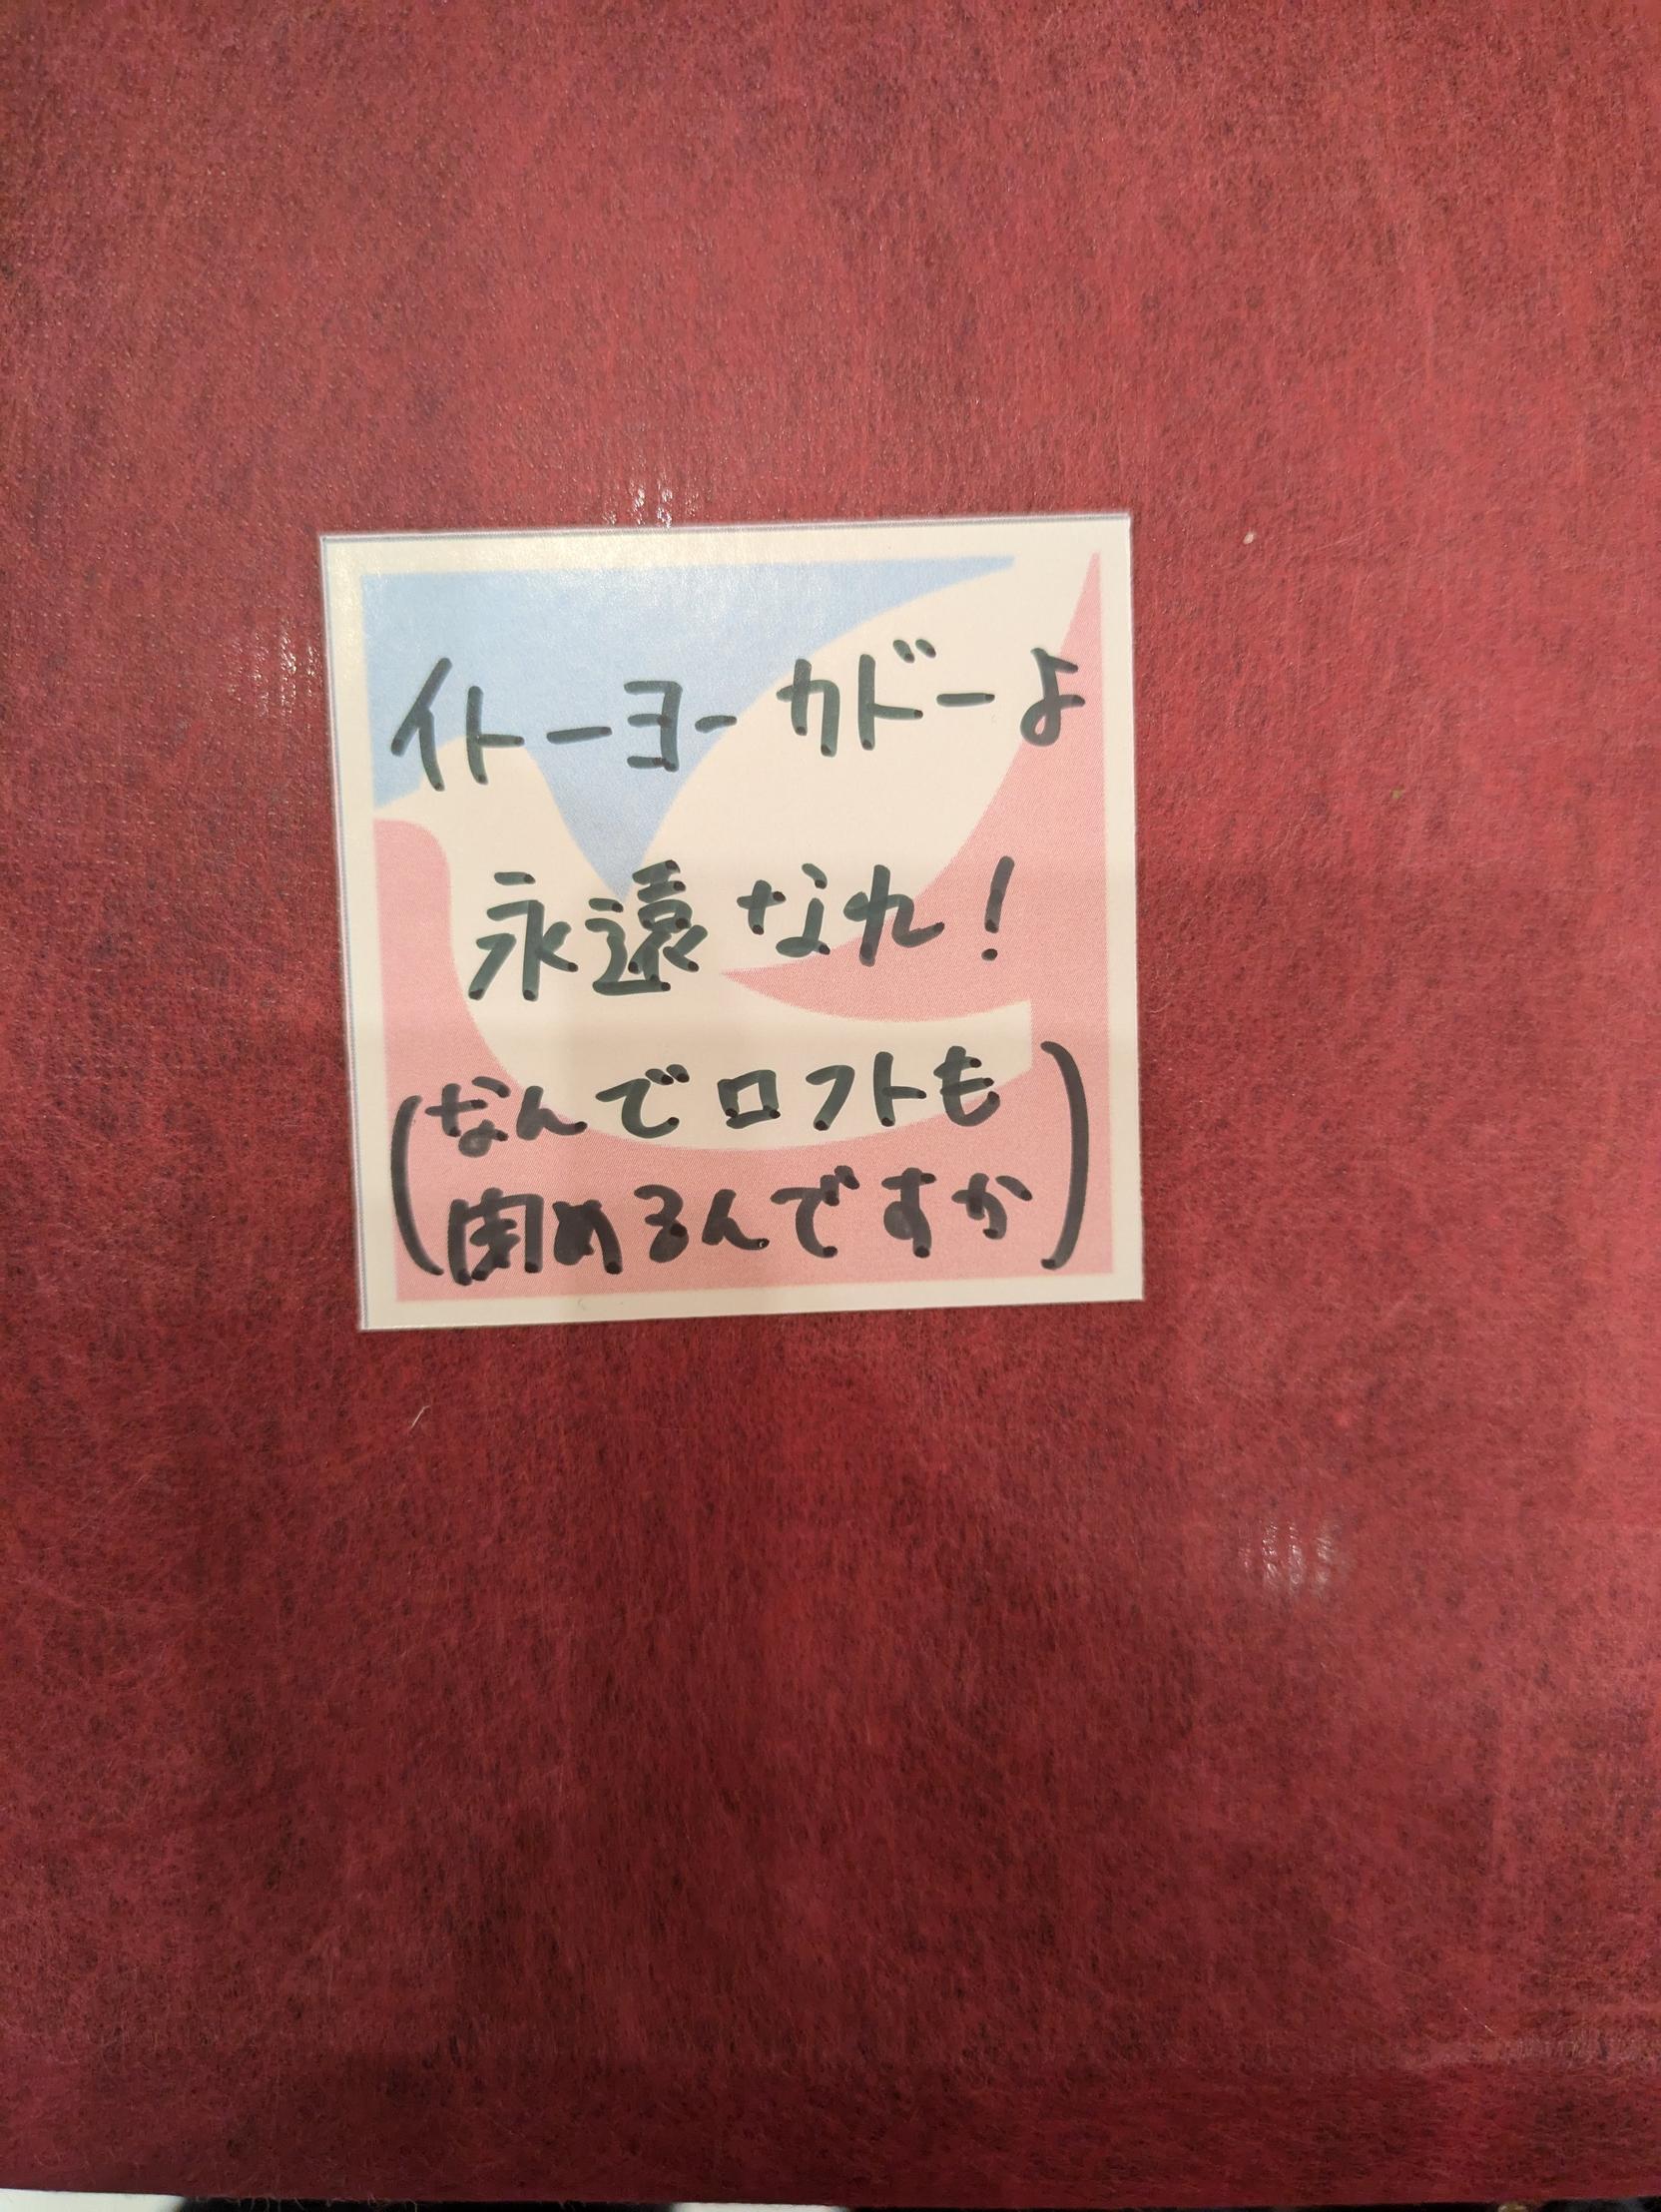 イトーヨーカドーよ
永遠なれ!
(なんでロフトも
閉めるんですか)